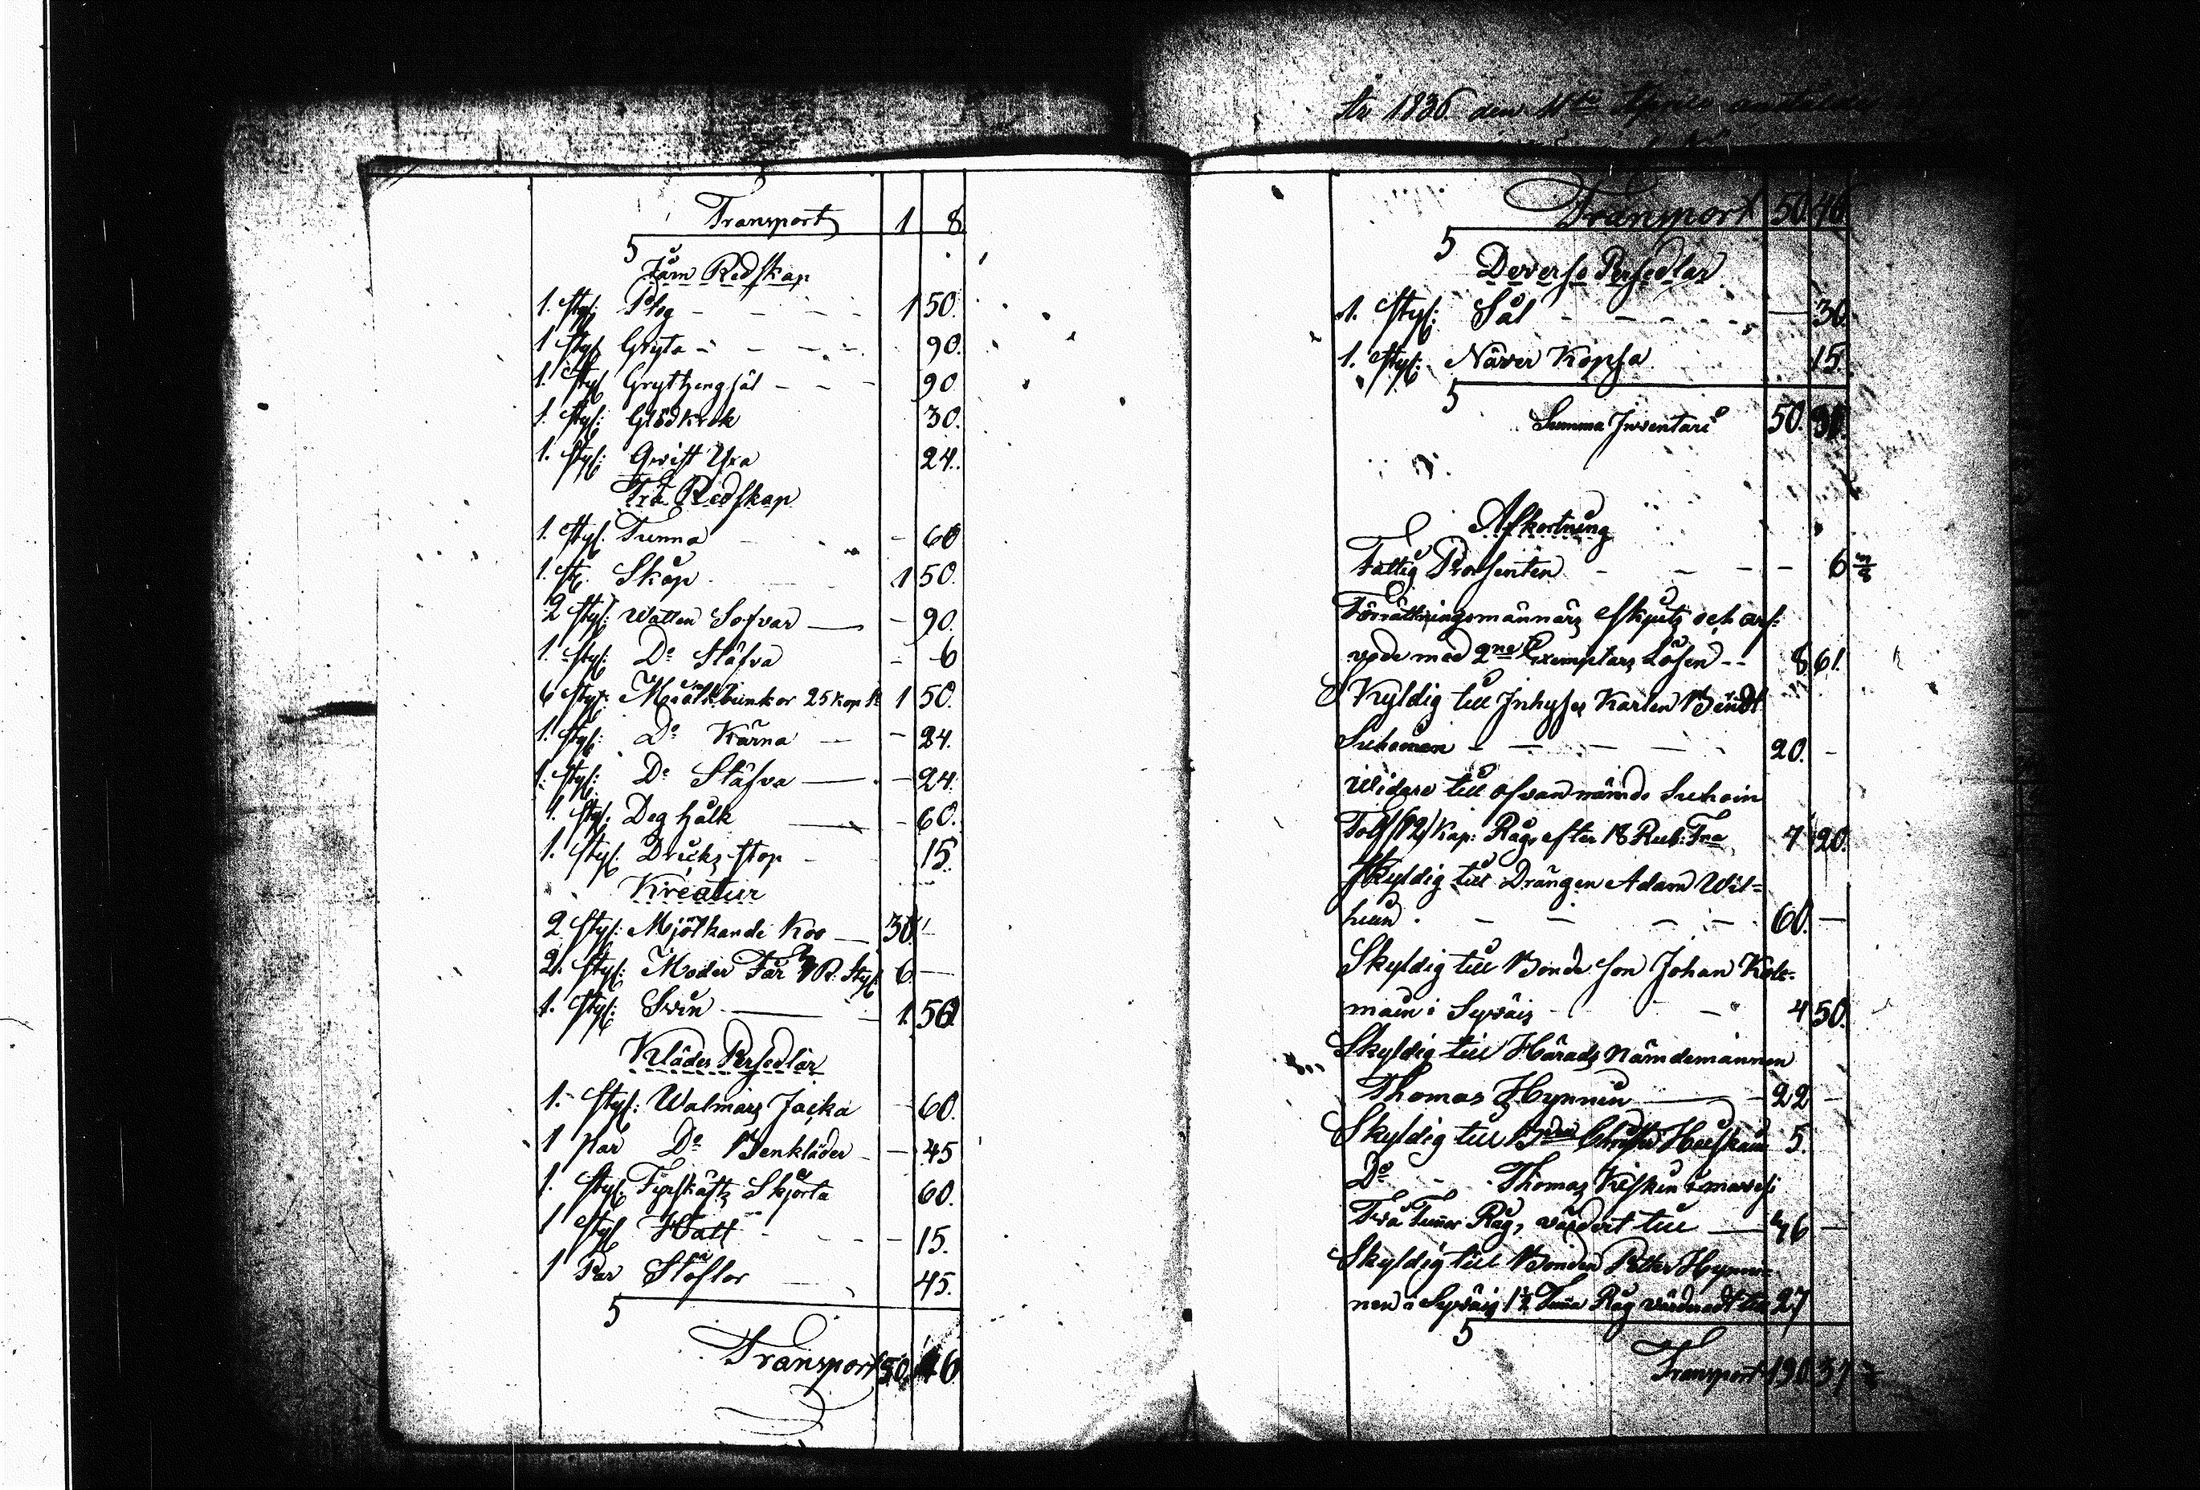 Transport 1 8
Järn Redskap
1. Styk: Plog - - - - 1 50.
1 Styk Gryta - - - - 90.
1. Styk Gryttjengsäl - - - 90
1. Styk: Glödkrok 30.
1. Styk: Qvist Yxa 24.
Trä Redskap
1. Styk: Tunna - - 60
1. St: Skåp 1 50.
2 Styk: Watten Sofvar - 90.
1. Styk: Do Stäfva - 6
6 Styk: Miölkbunkor 25 Kop St 1 50.
1. Styk: Do Kärna - 24.
1. Styk: Do Stäfva - 24.
1. Styk: Deg hålk - 60.
1. Styk: Drickz stop - 15.
Kreatur
2 Styk: Mjölkande Kor 30. -
2. Styk: Moder Får 3 R. Styk 6. -
1. Styk: Svin 1. 50
Kläder Persedlar
1. Styk: Walmarz Jacka - 60.
1 par Do Benkläder - 45
1. Styk Fyrskäftz Skjorta 60.
1 Styk Hatt - - - 15.
1 Par Stöflor 45.
Transport 50. 46.
År 1836 den 11te Aprill
Transport 50 46
Diverse Persedlar
1. Styk: Sål - - - - - 30.
1. Styk: Näver Kopsa 15.
Summa Inventarii 50. 91.
Afkortning
Fattig Procenten - - - - 6
Förrättningsmännärs skjutz och arf-
vode med 2ne Exemplars Lösen - - 8 61.
Skyldig till Inhyses Karlen Bendt
Suhoinen - - - - - 20. -
Widare till ofvannämde Suhoin
Tolf (12) Kap: Råg, efter 18 Rub: Tna 7 20.
Skyldig till Drängen Adam Wil-
hun - - - - 60. -
Skyldig till Bonde son Johan Kole-
main i Syväis - - 4 50.
Skyldig till Härads Nämdemannen
Thomas Hynnin 22 -
Skyldig till Huskain 5.
Do - - Thomas Kisken
Två Tunnor Råg, värdert till 36 -
Skyldig till Bonden Petter Hynni-
nen i Syväis 1½ Tunna Råg värderadt till 27
Transport 190 37